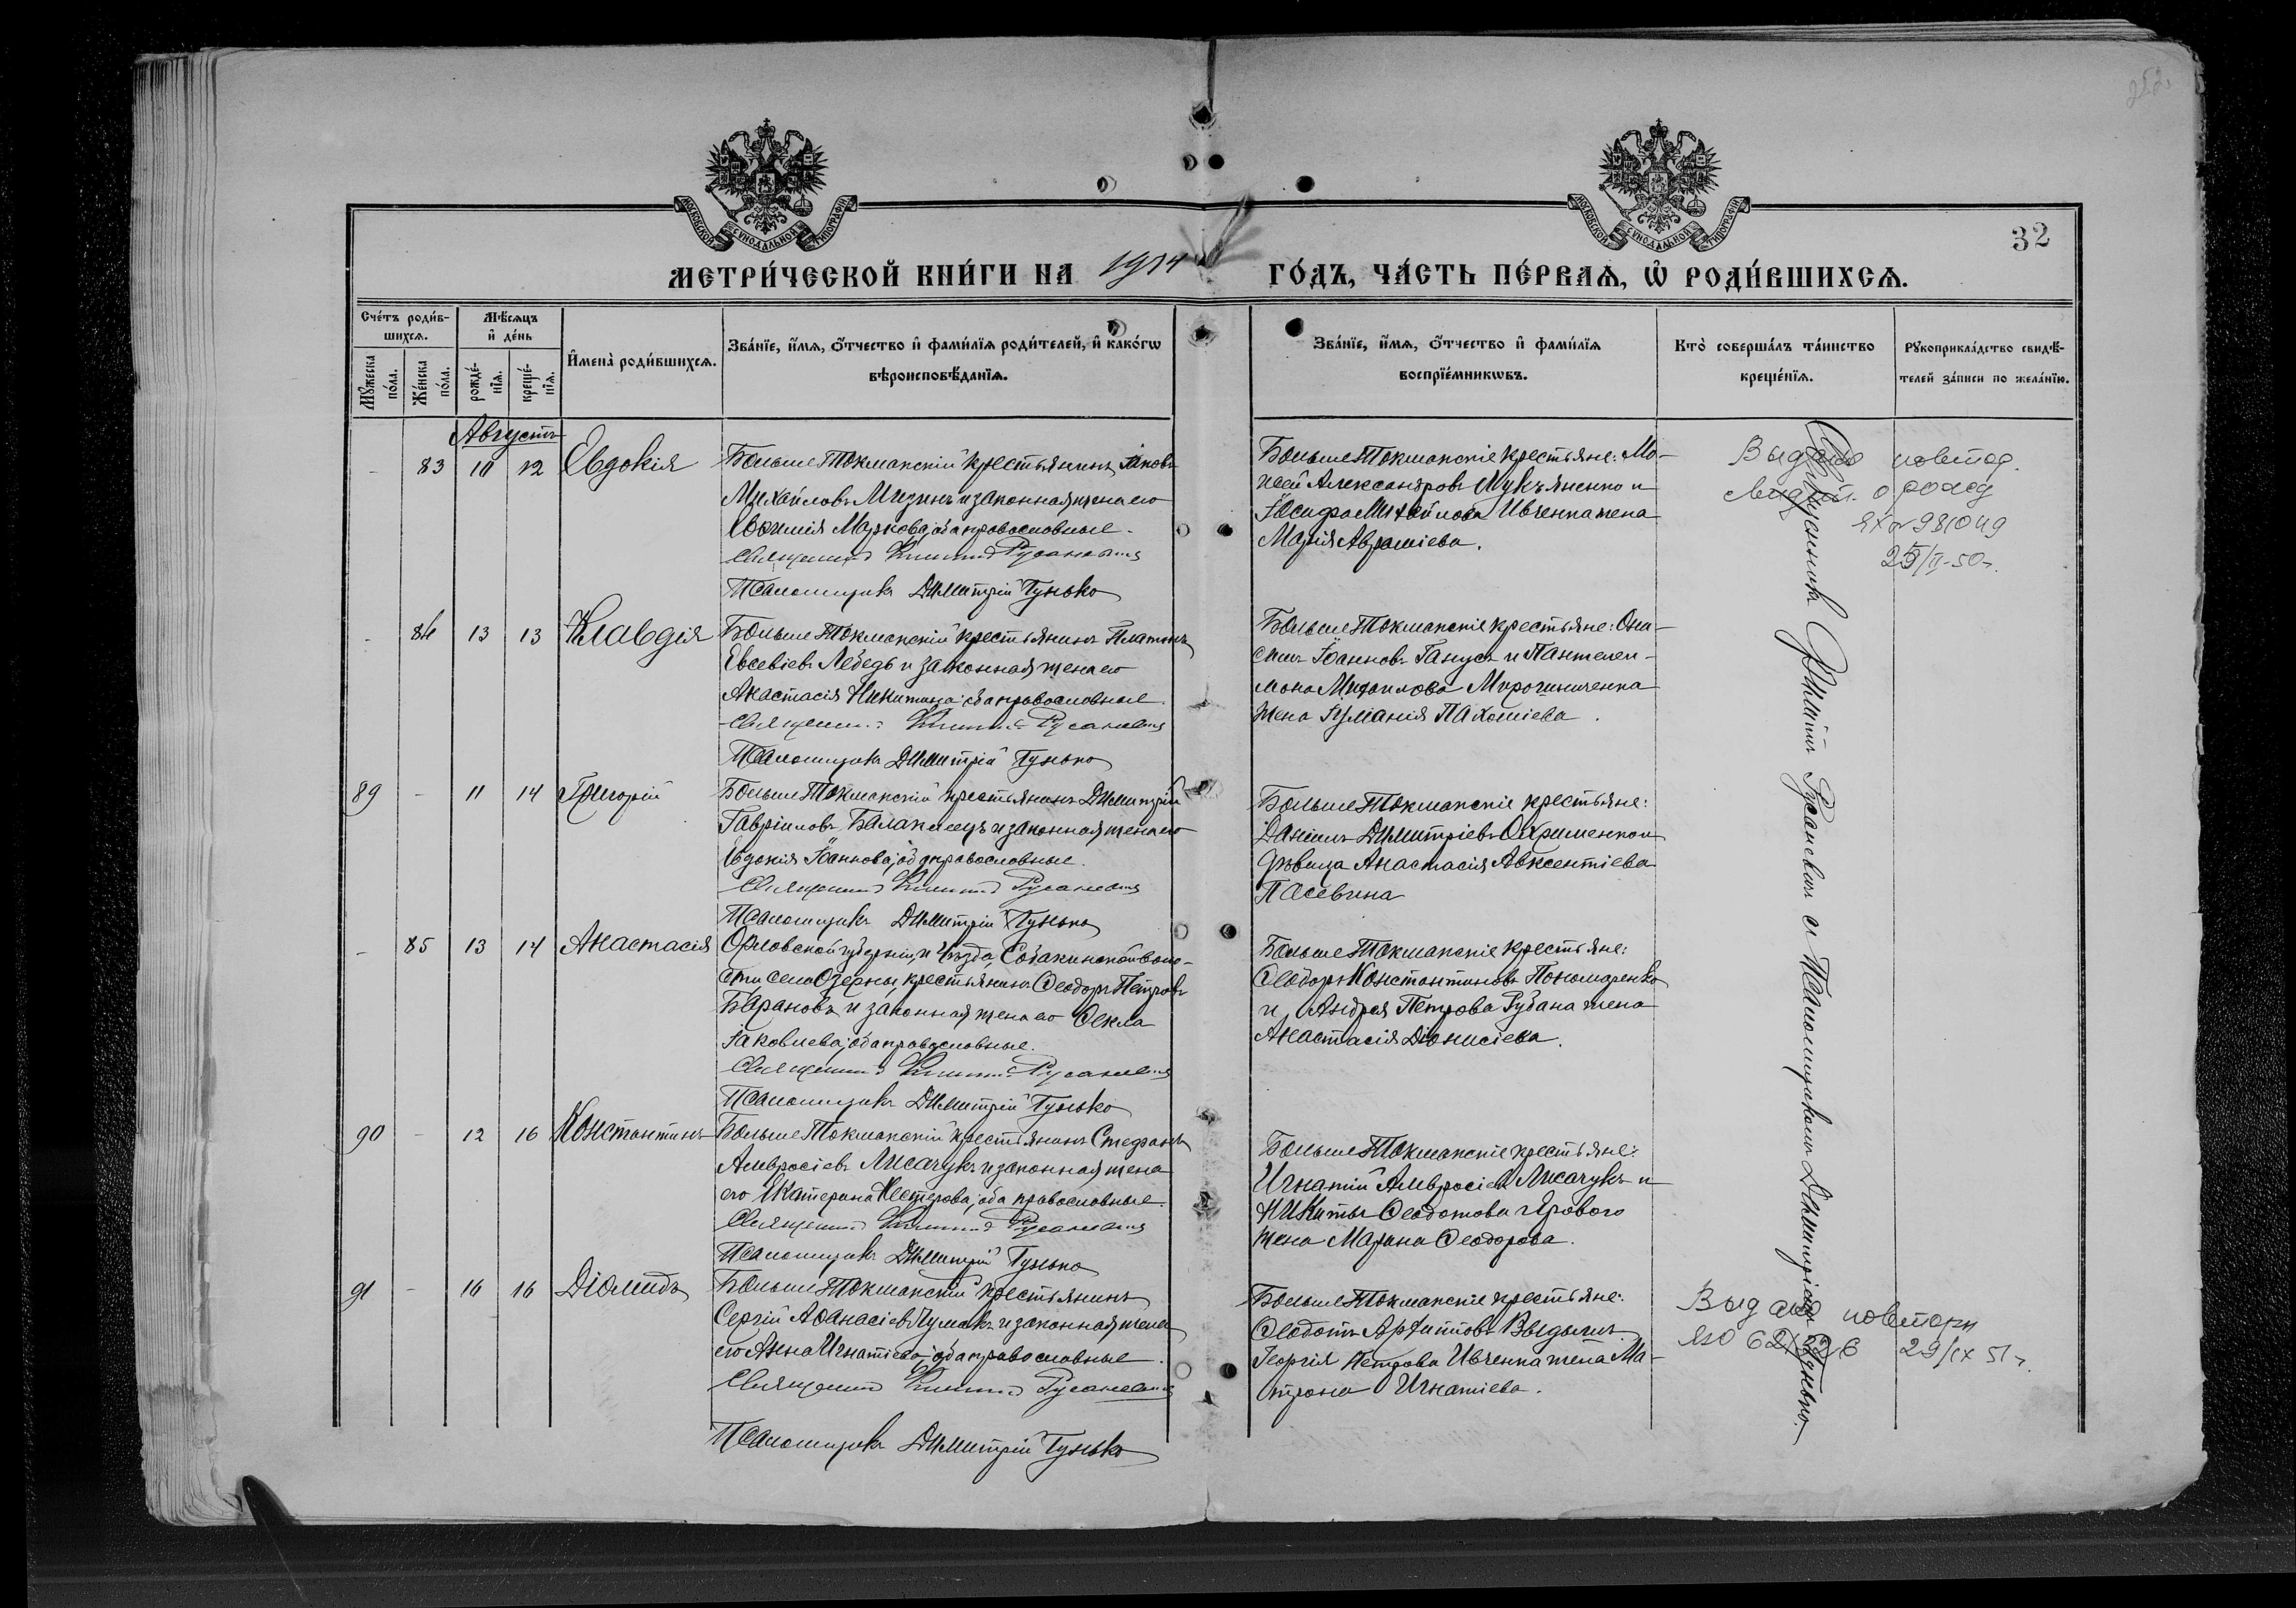 252.
МОСКОВСКОЙ СѴНОДАЛЬНОЙ ТИПОГРАФІИ
МОСКОВСКОЙ СѴНОДАЛЬНОЙ ТИПОГРАФІИ
32
МЕТРИ́ЧЕСКОЙ КНИ́ГИ НА 1914 ГО́ДЪ, ЧА́СТЬ ПЕ́РВАѦ, Ѡ҆ РОДИ́ВШИХСѦ.
Сче́тъ роди́в-
шихсѧ.
Мꙋ́жеска по́ла.
Же́нска по́ла.
Мѣ́сѧцъ
и҆ де́нь
рожде́-
нїѧ.
креще́-
нїѧ.
И҆мена̀ роди́вшихсѧ.
Зва́нїе, и҆́мѧ, ѻ҆́тчество и҆ фами́лїѧ роди́телей, и҆ како́гѡ
вѣроисповѣ́данїѧ.
Зва́нїе, и҆́мѧ, ѻ҆́тчество и҆ фами́лїѧ
воспрїе́мникѡвъ.
Кто̀ соверша́лъ та́инство
креще́нїѧ.
Рꙋкоприкла́дство свидѣ́-
телей за́писи по жела́нїю.
Августъ
- 83 10 12 Евдокія
БольшеТокмакскій крестьянинъ Іаковъ
Михайловъ Мизинъ и законная жена его
Евфимія Маркова, оба православные.
Священникъ Филиппъ Русаневичъ
Псаломщикъ Димитрій Гунько
БольшеТокмакскіе крестьяне: Мо-
исей Александровъ Лукъяненко и
Іосифа Михайлова Ивченка жена
Марія Авраміева.
Выдано повтор.
свидет. о рожд
ЯХ № 981049
25/II-50 г.
- 84 13 13 Клавдія
БольшеТокмакскій крестьянинъ Платонъ
Евсевіевъ Лебедь и законная жена его
Анастасія Никитина, оба православные.
Священникъ Филиппъ Русаневичъ
Псаломщикъ Димитрій Гунько
БольшеТокмакскіе крестьяне: Они-
симъ Іоанновъ Ганусъ и Пантелеи-
мона Михаилова Мирошниченка
жена Іуліанія Пахоміева.
89 - 11 14 Григорій
БольшеТокмакскій крестьянинъ Димитрій
Гавріиловъ Балаклеецъ и законная жена его
Евдокія Іоаннова, оба православные.
Священникъ Филиппъ Русаневичъ
Псаломщикъ Димитрій Гунько
БольшеТокмакскіе крестьяне:
Даніилъ Димитріевъ Охрименко и
дѣвица Анастасія Авксентіева
Пасевина
- 85 13 14 Анастасія
Орловской губерніи и уѣзда, Собакинской воло-
сти, села Озерны, крестьянинъ Ѳеодоръ Петровъ
Барановъ и законная жена его Ѳекла
Іаковлева, оба православные.
Священникъ Филиппъ Русаневичъ
Псаломщикъ Димитрій Гунько
БольшеТокмакскіе крестьяне:
Ѳеодоръ Константиновъ Пономаренко
и Андрея Петрова Рубана жена
Анастасія Діонисіева.
90 - 12 16 Константинъ
БольшеТокмакскій крестьянинъ Стефанъ
Амвросіевъ Лисачукъ и законная жена
его Екатерина Нестерова, оба православные.
Священникъ Филиппъ Русаневичъ
Псаломщикъ Димитрій Гунько
БольшеТокмакскіе крестьяне:
Игнатій Амвросіевъ Лисачукъ и
Никиты Ѳеодотова Ярового
жена Марина Ѳеодорова.
91 - 16 16 Діомидъ
БольшеТокмакскій крестьянинъ
Сергій Аѳанасіевъ Чумакъ и законная жена
его Анна Игнатіева, оба православные.
Священникъ Филиппъ Русаневичъ
Псаломщикъ Димитрій Гунько
БольшеТокмакскіе крестьяне:
Ѳеодотъ Архипповъ
Георгія Петрова Ивченка жена Ма-
трона Игнатіева.
Выдано повторн
29/IX 51 г.
Священникъ Филиппъ Русаневичъ съ Псаломщикомъ Димитріемъ Гунько.